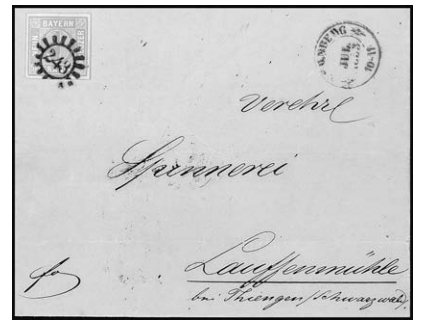 BAYERN
243
JUL
10-11
Verehrl
Spinnerei
Lauffenmühle
bei Thiengen (Schwarzwald)
fo